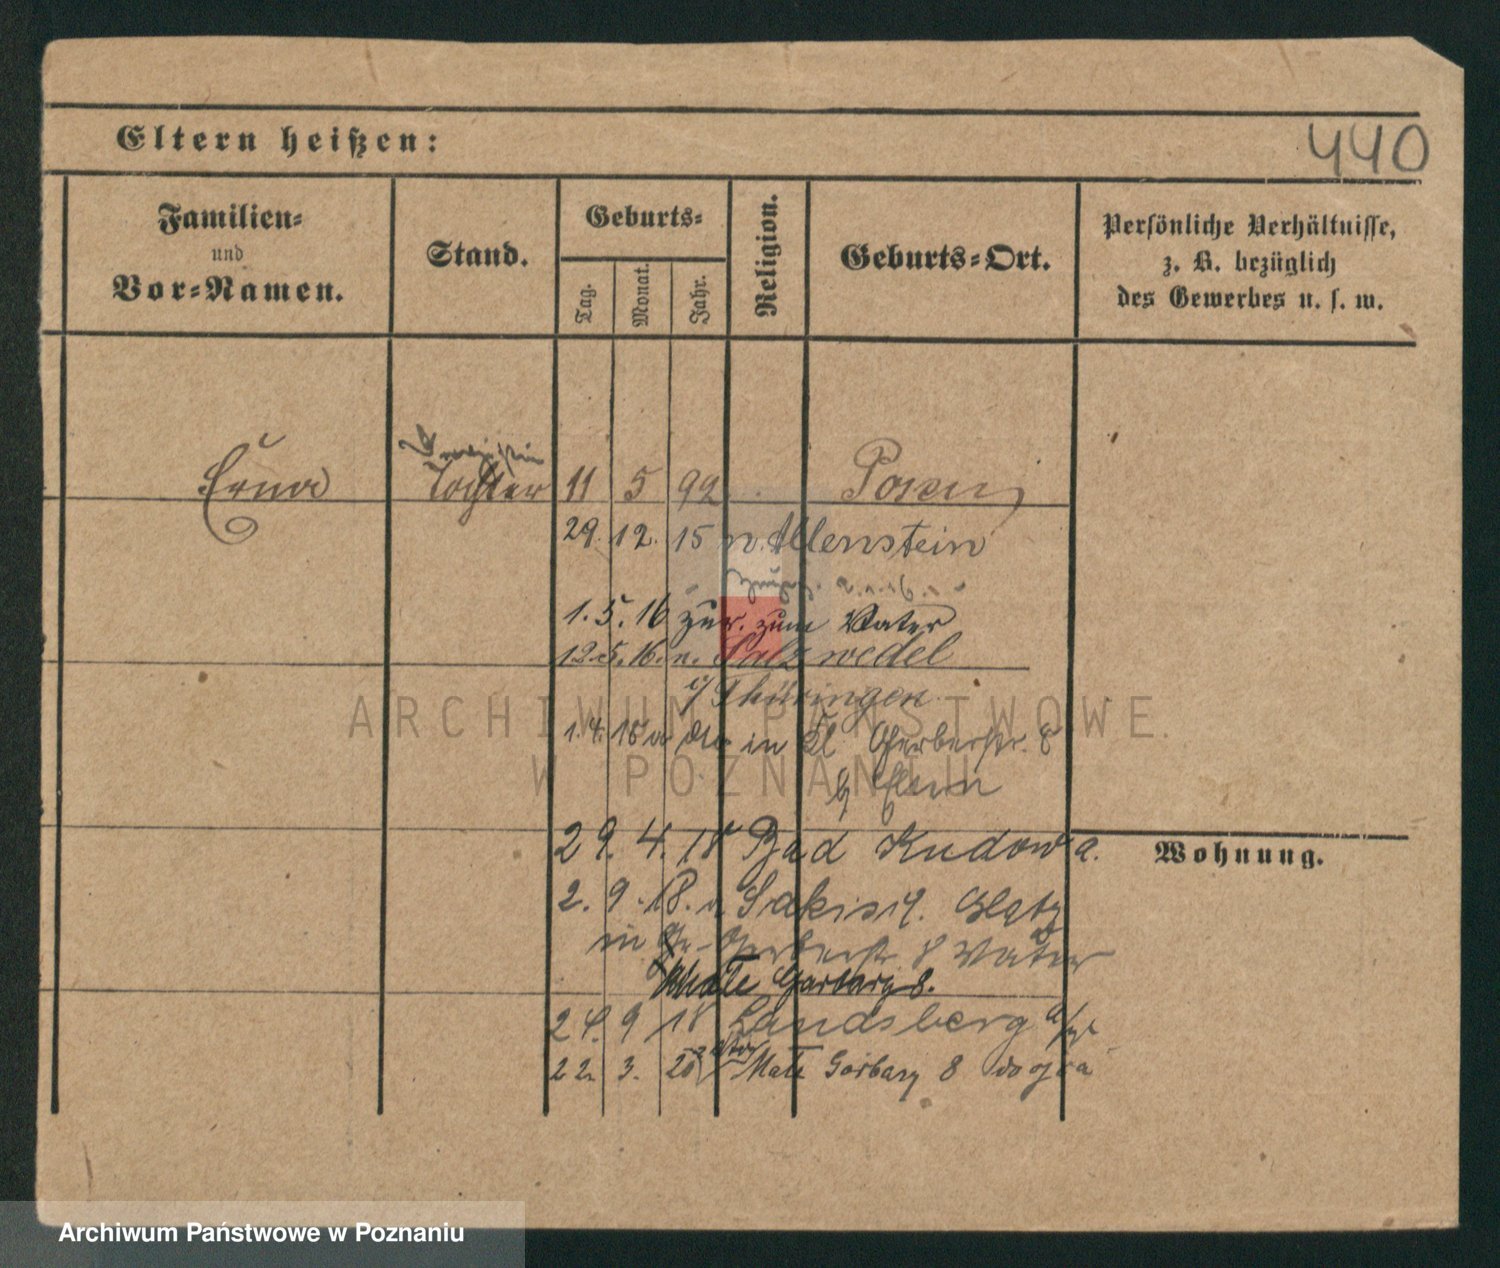 Eltern heißen:
440
Familien=
und
Vor=Namen.
Stand.
Geburts=
Tag.
Monat.
Jahr.
Religion.
Geburts=Ort.
Persönliche Verhältnisse,
z. B. bezüglich
des Gewerbes u. s. w.
Erna Tochter 11 5 99 Posen
29. 12. 15 n. Allenstein
1. 5. 16 zur. zum Vater
12. 5. 16. n. Salzwedel
i/Thüringen
1. 4. in Kl Gerberstr. 8
b/ Eltern
29. 4. 18 Bad Kudowa.
Wohnung.
2. 9. 18. v. Glatz
in Gr. Gerberstr 8 Vater
Małe Garbary 8.
24. 9 18 Landsberg a/
22. 3. 20 Małe Garbary 8 do ojca
ARCHIWUM PAŃSTWOWE
W POZNANIU
Archiwum Państwowe w Poznaniu